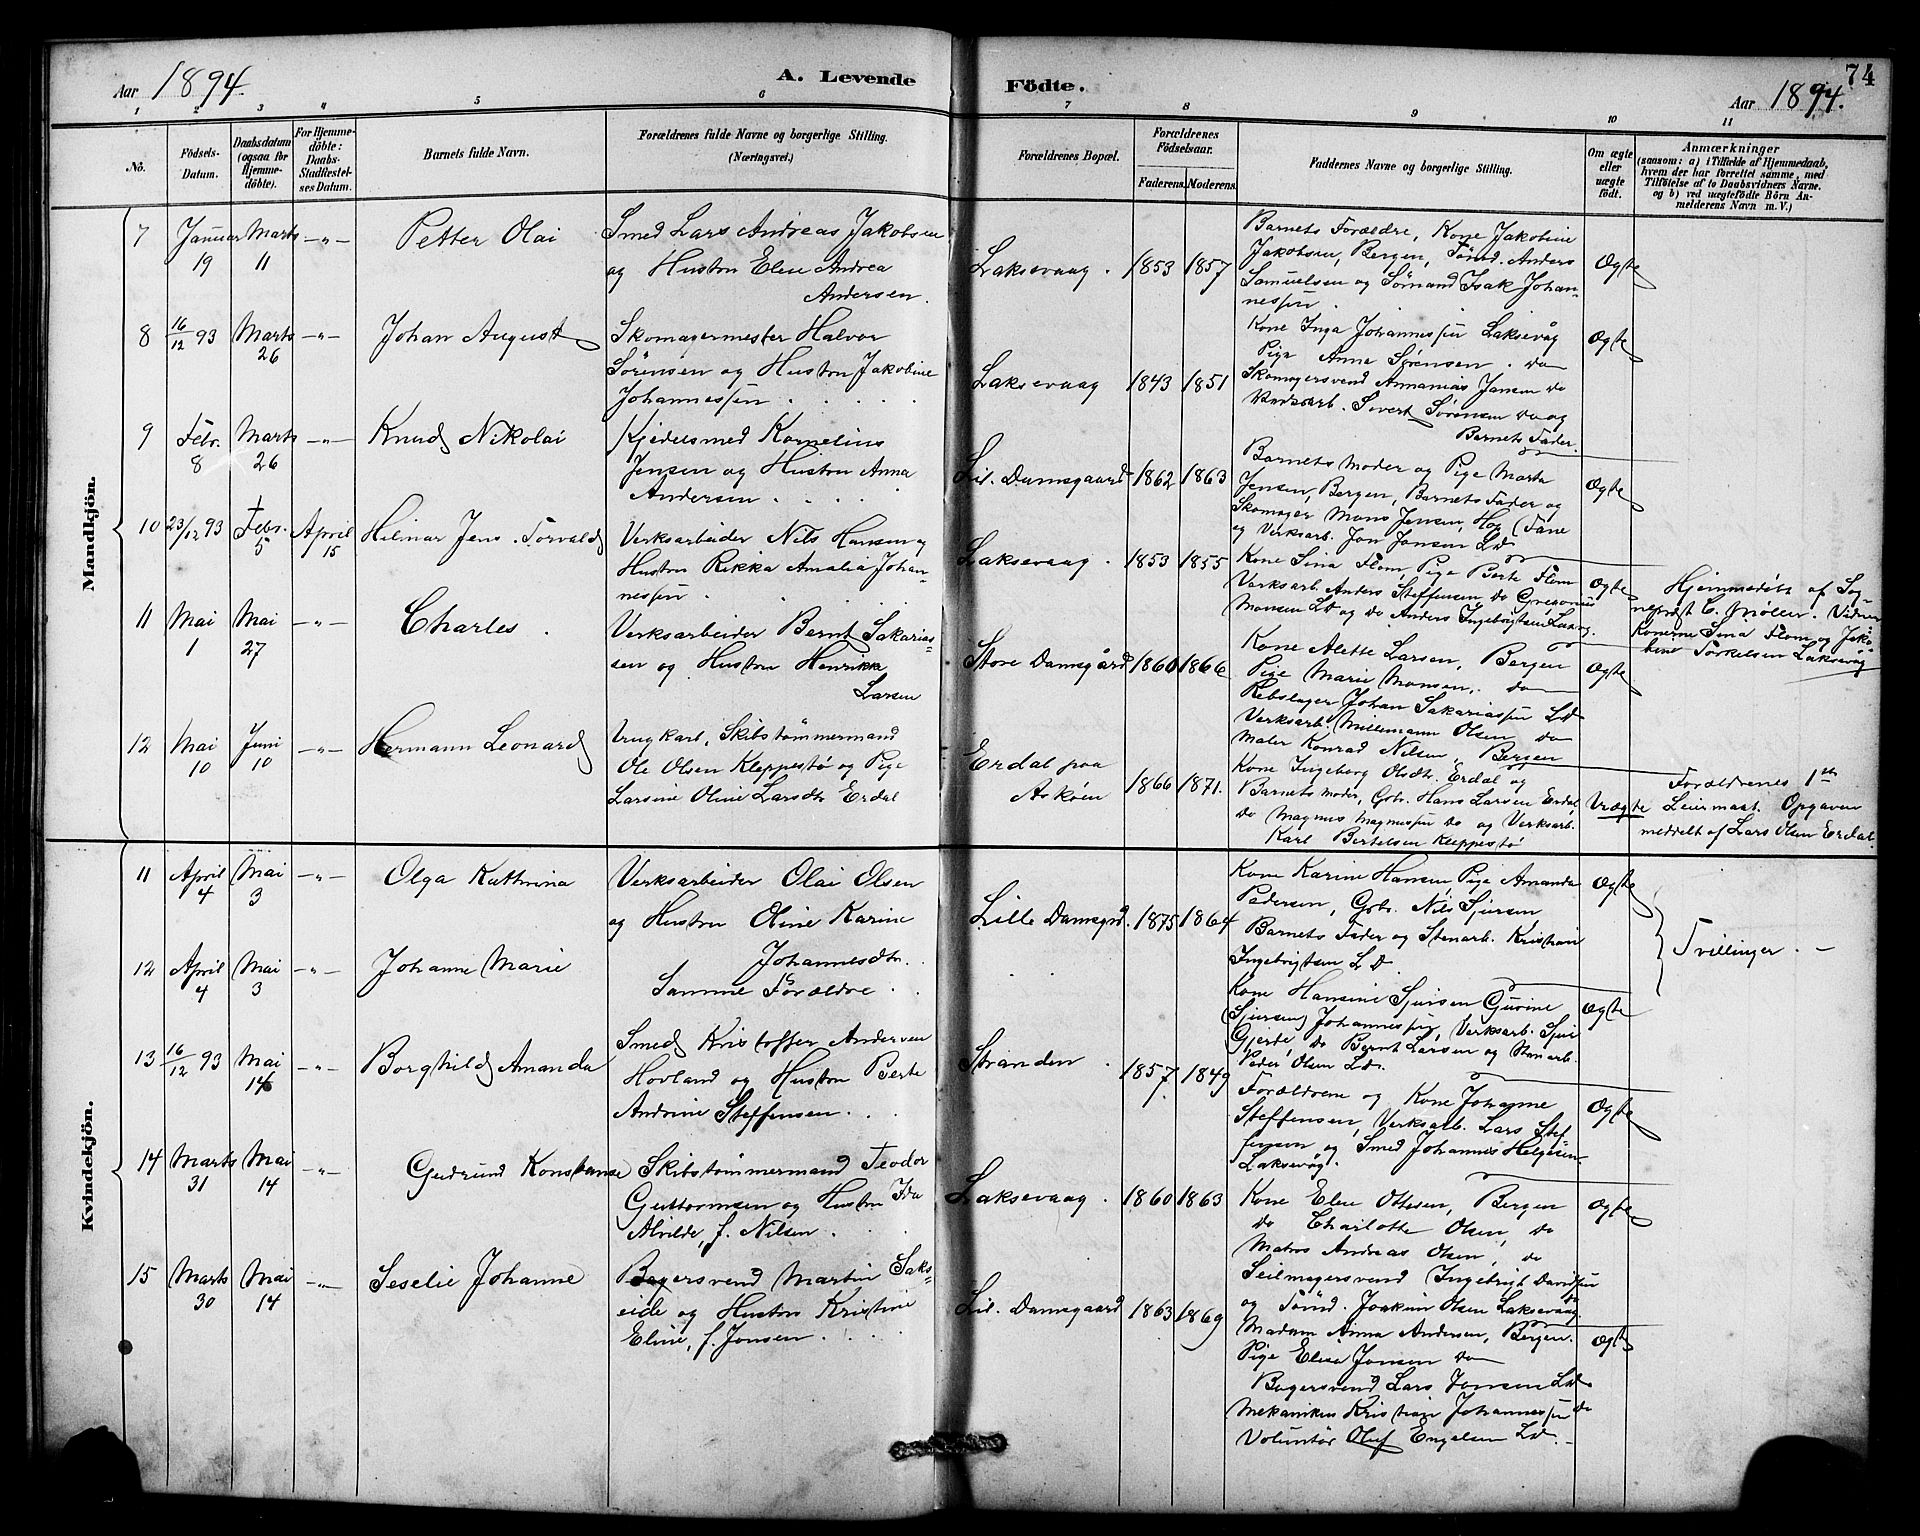 Aar 1894.
A. Levende
Födte.
Aar 1894.
74
1 2 3 4 5 6 7 8 9 10 11
No.
Födsels-
Datum.
Daabsdatum
(ogsaa for
Hjemme-
döbte).
For Hjemme-
döbte:
Daabs-
Stadfæstel-
ses Datum.
Barnets fulde Navn.
Forældrenes fulde Navne og borgerlige Stilling.
(Næringsvei.)
Forældrenes Bopæl.
Forældrenes
Födselsaar.
Faderens. Moderens.
Faddernes Navne og borgerlige Stilling.
Om ægte
eller
uægte
födt.
Anmærkninger
(saasom: a) i Tilfælde af Hjemmedaab,
hvem der har forrettet samme, med
Tilföielse af to Daabsvidners Navne,
og b) ved uægtefödte Börn An-
melderens Navn m. V.)
Mandkjön.
7
Januar
19
Marts
11
-"-
Petter Olai
Smed Lars Andreas Jakobsen
og Hustru Eline Andrea
Andersen.
Laksevaag.
1853 1857
Barnets Forældre, Kone Jakobine
Jakobsen, Bergen, Tömd. Anders
Samuelsen og Sömand Isak Johan-
nessen.
Ægte
8
16/12 93
Marts
26
-"-
Johan August
Skomagermester Halvor
Sörensen og Hustru Jakobine
Johannessen . . . . .
Laksevaag
1843 1851
Kone Inga Johannessen Laksevåg
Pige Anna Sørensen. do
Skomagersvend Annanias Jansen do
Sivert Sörensen do og
Barnets Fader.
Ægte
9
Febr.
8
Marts
26
-"-
Knud Nikolai
Kjedelsmed Kornelius
Jensen og Hustru Anna
Andersen . . . .
Lil. Damsgaard
1862 1863
Barnets Moder og Pige Marta
Jensen, Bergen, Barnets Fader og
Skomager Mons Jensen, Hop (Fane
og Verksarb. Jon Jansen Ld
Ægte
10
23/12 93
†
Febr.
5
April
15
Hilmar Jens Torvald
Verksarbeider Nils Hansen og
Hustru Rikka Amalia Johan-
nessen . . . .
Laksevaag.
1853 1855
Kone Sina Flom, Pige Berte Flom
Verksarb. Anders Steffensen do Gregorius
Monsen Ld og do Anders Ingebrigtsen
Ægte
Hjemmedøbt af Sog-
neprest C. Møller. Vidner
Konerne Sina Flom og Jako-
bine Torkelsen Laksevåg
11
Mai
1
Mai
27
-"-
Charles.
Verksarbeider Bernt Sakarias-
sen og Hustru Henrikke
Larsen
Store Damsgård
1860 1866
Kone Alette Larsen, Bergen
Pige Marie Monsen, do
Rebslager Johan Sakariassen Ld
Verksarb. Olsen do
Maler Konrad Nilsen, Bergen
Ægte
12
Mai
10
Juni
10
-"-
Hermann Leonard
Ungkarl, Skibstømmermand
Ole Olsen Kleppestø og Pige
Larsine Oline Larsdtr Erdal
Erdal paa
Askøen
1866 1871.
Kone Ingeborg Olsdtr. Erdal og
Barnets Moder, Gbr. Hans Larsen Erdal,
do Magnus Magnessen do og Verksarb.
Karl Bertelsen Kleppestø
Uægte
Forældrenes 1ste
Leiermaal. Opgaven
meddelt af Lars Olsen Erdal.
Kvindekjön.
11
April
4
Mai
3
-"-
Olga Kathrina
Verksarbeider Olai Olsen
og Hustru Oline Karine
Johannesdtr.
Lille Damsgrd.
1875 1864
Kone Karine Hansen, Pige Amanda
Pedersen, Gbr. Nils Sjursen
Barnets Fader og Stenarb. Kristian
Ingebrigtsen Ld.
Ægte
Tvillinger. -
12
April
4
Mai
3
-"-
Johanne Marie
Samme Forældre . .
Kone Hansine Sjursen Gurine
(Sjursen) Johannessen, Verksarb. Sjur
Gjerde, do Bernt Larsen og Stenarb.
Peder Olsen Ld.
Ægte
13
16/12 93
Mai
14
-"-
Borghild Amanda
Smed Kristoffer Andersen
Hovland og Hustru Berte
Andrine Steffensen. . .
Stranden .
1857. 1849
Forældrene og Kone Johanne
Steffensen, Verksarb. Lars Stef-
fensen og Smed Johannes Helgesen
Laksevåg.
Ægte
14
Marts
31
Mai
14
-"-
Gudrund Konstanse
Skibstømmermand Teodor
Guttormsen og Hustru Ida
Alvilde, f. Nilsen. . .
Laksevaag.
1860 1863
Kone Eline Ottesen, Bergen
do Charlotte Olsen, do
Matros Andreas Olsen, do
Seilmagersvend Ingebrigt Davidsen do
og Tömd. Joakim Olsen Laksevaag
Ægte
15
Marts
30
Mai
14
-"-
Seselie Johanne
Bagersvend Martin Saks-
eide og Hustru Kristine
Eline, f. Jonsen . . . .
Lil. Damsgaard
1863 1869
Madam Anna Andersen, Bergen.
Pige Elisa Jonsen do
Bagersvend Lars Jonsen Ld.
Mekaniker Kristian Johannessen do
Voluntör Oluf Engelsen Ld. -
Ægte